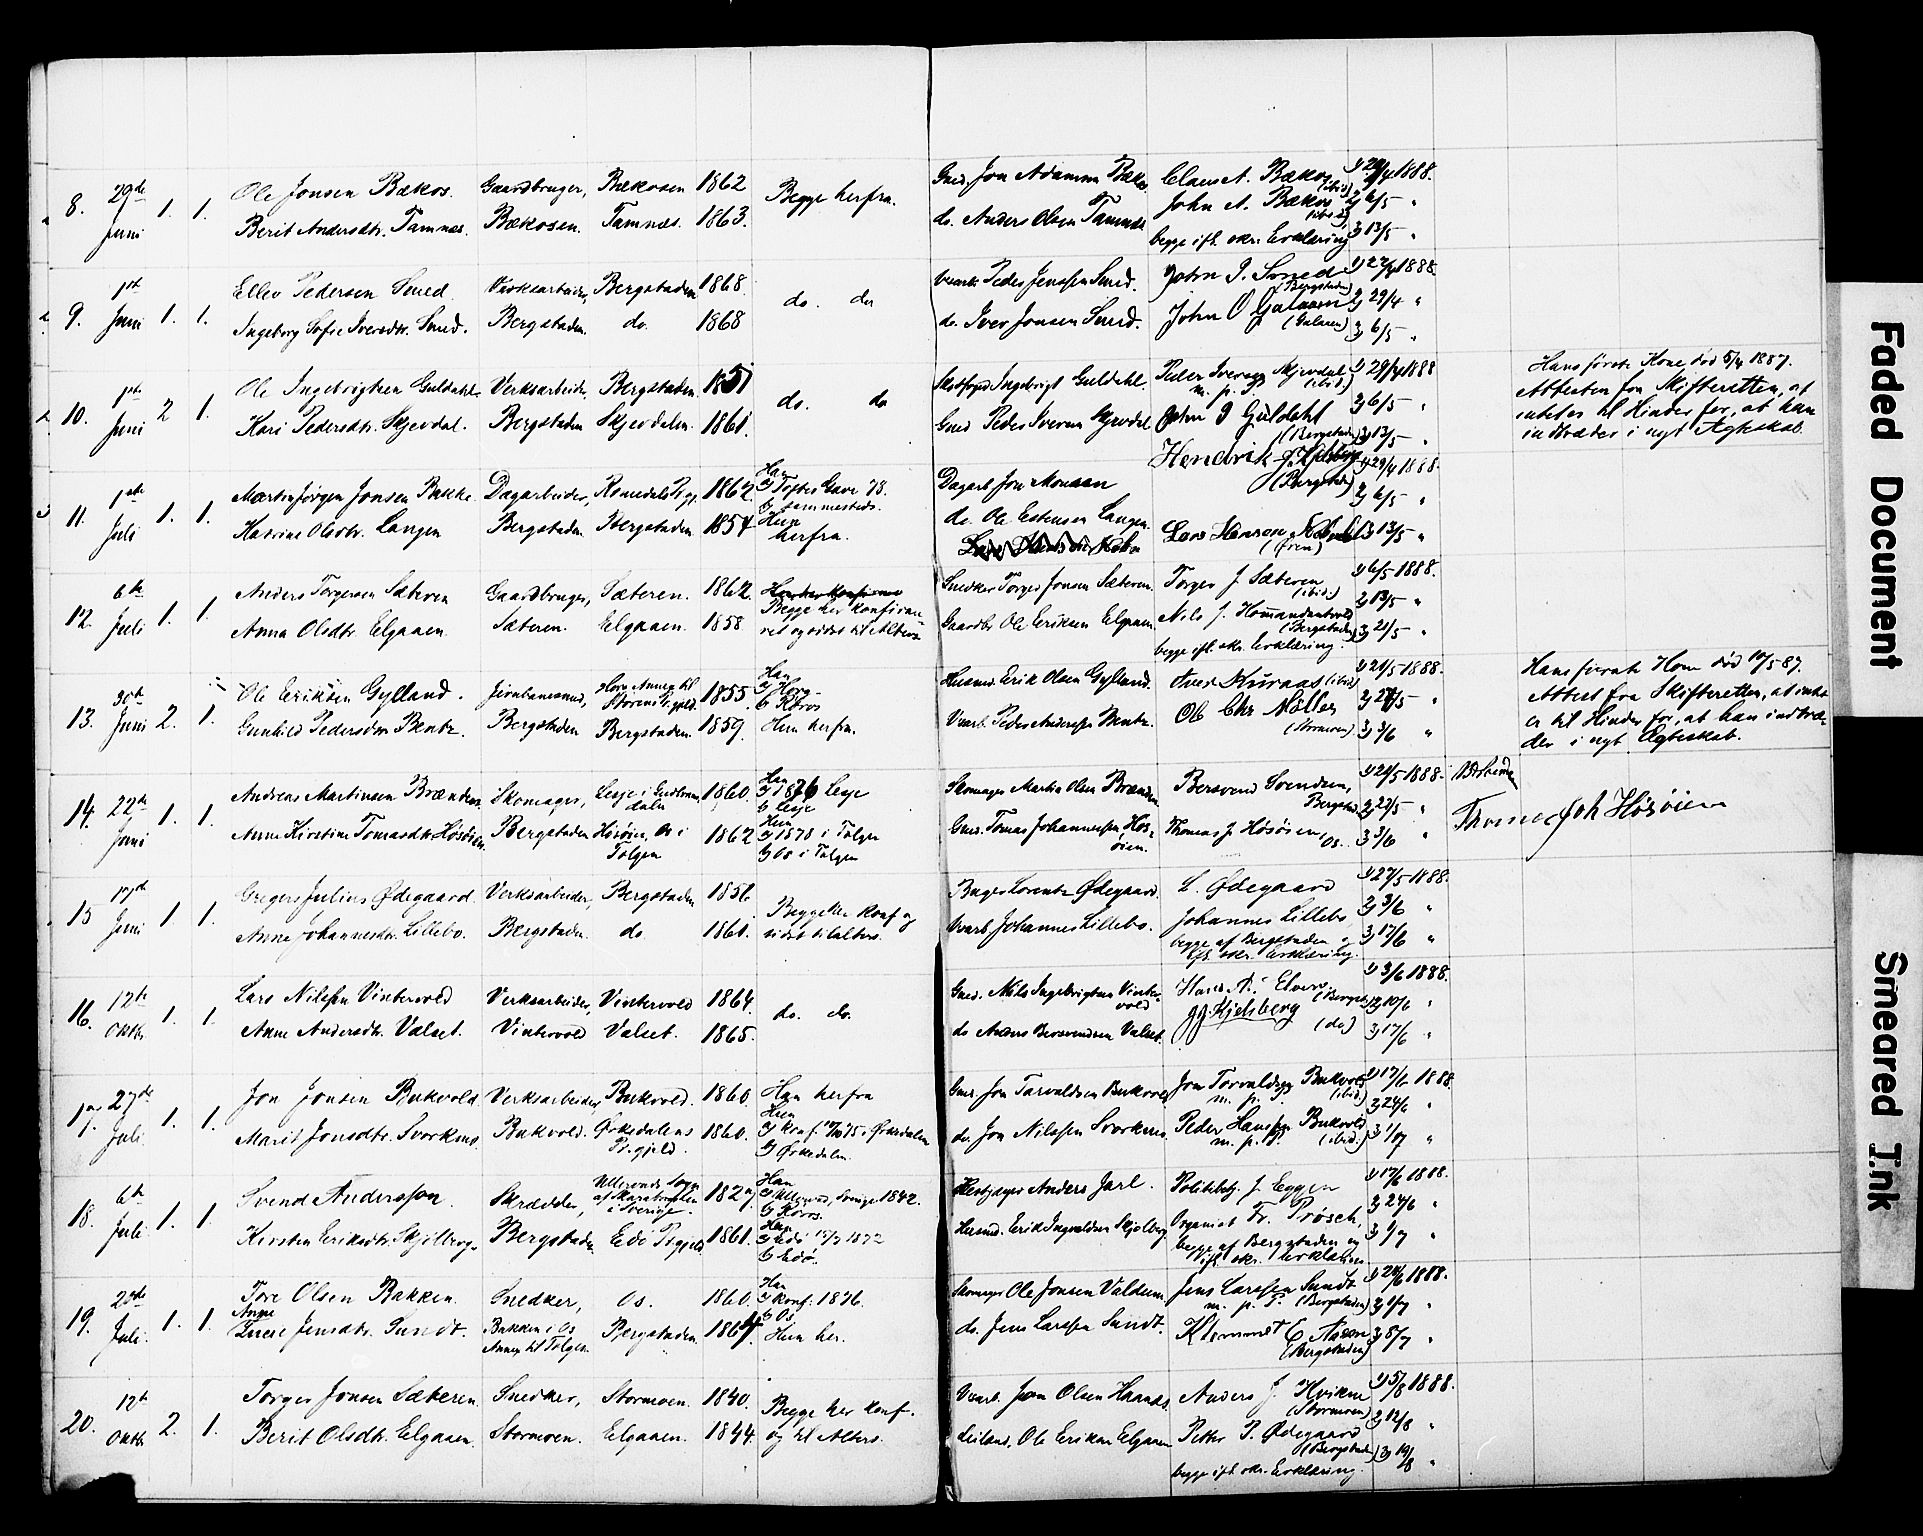 8. 29de Juni 1. 1. Ole Jonsen Bækos. Gaardbruger, Bækosen 1862 Begge herfra. Gmd. Jon Adamsen Bækos Claus A. Bækos (ibid) 1) 29/4 1888.
Berit Andersdtr. Tamnes. Bækosen. Tamnæs. 1863. do. Anders Olsen Tamnæs John A. Bækos (ibid) 2) 6/5 "
begge ifl. skr. Erklæring 3) 13/5 "
9. 1ste Juni 1. 1. Ellev Pedersen Smed. Værksarbeider, Bergstaden 1868. do. do Peder Jensen Smed. John P. Smed (Bergstaden) 1) 22/4 1888.
Ingeborg Sofie Iversdtr. Smed. Bergstaden. do. 1868 do. Iver Jonsen Smed. John O Galaaen (Galaaen) 2) 29/4 "
3) 6/5 "
10. 1ste Juni 2 1. Ole Ingebrigtsen Guldahl. Verksarbeider, Bergstaden. 1851 do. do Ingebrigt Guldahl. Peder Iversen Skjevdal (ibid.) m. p. P. 1) 29/4 1888
Kari Pedersdtr. Skjevdal. Bergstaden Skjevdalen. 1861. Gmd Peder Iversen Skjevdal John I Guldahl (Bergstaden) 2) 6/5 "
3) 13/5 "
Hans første Kone død 5/4 1887.
Attesten fra Skifteretten, at
intet er til Hinder for, at han
indtræder i nyt Ægteskab.
11. 1ste Juli 1. 1. Martin Jørgen Jonsen Bakke. Dagarbeider, Romedals Pgj. 1862 Han
a) Toftes Gave 78.
b) sammesteds.
Dagarb Jon Monsen Hendrik J. Kjelsberg (Bergstad) 1) 29/4 1888.
Katrine Olsdtr. Langen Bergstaden. Bergstaden. 1854 Hun herfra. do. Ole Estensen Langen. 2) 6/5 "
Lars Hansen (Øien) 3) 13/5 "
12. 6te Juli 1. 1. Anders Torgersen Sæteren Gaardbruger, Sæteren. 1862. Begge her konfirmeret og sidst til Alters Snedker Torger Jonsen Sæteren. Torger J. Sæteren (ibid.) 1) 6/5 1888.
Anna Olsdtr Elgaaen. Sæteren. Elgaaen. 1858. Gaardbr Ole Eriksen Elgaaen. Nils J. (Bergstaden) 2) 13/5 "
begge ifl. skr. Erklæring. 3) 21/5 "
13. 30te Juni 2. 1. Ole Eriksen Gylland. Jernbanemd, Horg Annex til Størens Pgjeld. 1855. Han
a) Horg
b) Røros
Husmd. Erik Olsen Gylland. Iver (ibid) 1) 21/5 1888.
Gunhild Pedersdtr Bentz. Bergstaden Bergstaden. 1859. Hun herfra. Varb. Peder Andersen Bentz. Ole Chr Møller (Stormoen) 2) 27/5 "
3) 3/6 "
Hans første Kone død 17/5 87.
Attest fra Skifteretten, at intet
er til Hinder for, at han indtræ-
der i nyt Ægteskab.
14. 22de Juni 1. 1. Andreas Martinsen Brænden. Skomager, Lesje i Gudbrandsdalen 1860. Han
a) 1876 Lesje
b) Lesje
Skomager Martin Olsen Brænden. Bersvend Svendsen, Bergstad. 1) 21/5 1888.
Anne Kirstine Tomasdtr. Høsøien. Bergstaden Høsøien, Os i Tolgen 1862 Hun
a) 1878 i Tolgen
b) Os i Tolgen
Gmd. Tomas Johannesen Høsøien. Thomas J. Høsøien, Os. 2) 27/5 "
3) 3/6 "
Thomas Joh Høsøien
15 17de Juni 1. 1. Gregers Julius Ødegaard. Verksarbeider, Bergstaden 1856 Begge her konf og sidst til alters. Bager Lorentz Ødegaard. L. Ødegaard 1) 27/5 1888.
Anne Johannesdtr. Lillebo. Bergstaden. do. 1861. Varb Johannes Lillebo. Johannes Lillebo, 2) 3/6 "
begge af Bergstaden og
ifl. skr. Erklæring. 3) 17/6 "
16. 12te Oktbr. 1. 1. Lars Nilsen Vintervold Verksarbeider, Vintervold 1864. do. do. Gmd. Nils Ingebrigtsen Vintervold Hans A. Elven (Bergst.) 1) 3/6 1888.
Anne Andersdtr. Valset. Vintervold Valset. 1865. do Anders Bersvendsen Valset. J. J. Kjelsberg (do) 2) 10/6 "
3) 17/6 "
17. 27de Juli 1. 1. Jon Jonsen Bukvold. Verksarbeider, Bukvold. 1860. Han herfra Gmd. Jon Torvaldsen Bukvold Jon Torvaldsen Bukvold (ibid.) m. p. P. 1) 17/6 1888.
Marit Jonsdtr. Svorkmo. Bukvold. Ørkedalens Pr.gjeld. 1860. Hun
a) konf. 75 i Ørkedalen
b) Ørkedalen.
do. Jon Nilsen Svorkmo. Peder Hansen Bukvold (ibid.) m. p. P. 2) 24/6 "
3) 1/7 "
18. 6te Juli 1. 1. Svend Andersson. Skrædder, i Sverige. 1827 Han
Sverige 1842.
b) Røros.
Anders Jarl. Politibtj. J. Eggen 1) 17/6 1888.
Kirsten Eriksdtr. Skjølberg. Bergstaden Edø Prgjeld 1861. Hun
a) Edø 1872
b) Edø.
Husmd. Erik Ingvaldsen Skjølberg. Organist Fr. Prøsch, 2) 24/6 "
begge af Bergstaden og
ifl. skr. Erklæring 3) 1/7 "
19. Juli. 1. 1. Tore Olsen Bakken. Snedker, Os. 1860. Han
a) konf. 1876.
b) Os
Skomager Ole Jonsen Jens Larsen Sundt m. p. P. (Bergstaden) 1) 24/6 1888.
Anne Jensdtr. Sundt. Bakken i Os Annex til Tolgen Bergstaden. 1864. Hun her. do. Jens Larsen Sundt. Klemmet E Aasen (Bergstaden) 2) 1/7 "
3) 8/7 "
20. 12te Oktbr 2. 1. Torger Jonsen Sæteren. Snedker, Stormoen. 1840. Begge her konf. og til Alters. Varb. Jon Olsen Anders J. (Stormoen) 1) 5/8 1888.
Berit Olsdtr. Elgaaen. Stormoen. Elgaaen. 1844. Ole Eriksen Elgaaen Petter P. Ødegaard (Bergstaden) 2) 12/8 "
begge ifl. skr. Erklæring. 3) 19/8 "
Faded Document
Smeared Ink